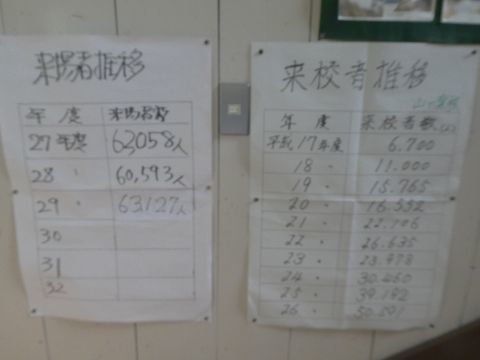 来場者推移
年度 来場者数
27年度 63058人
28 〃 60,593人
29 〃 63127人
30
31
32
来校者推移
年度 来校者数(人)
平成17年度 6,700
18 〃 11,000
19 〃 15,765
20 〃 16,552
21 〃 22,706
22 〃 26,635
23 〃 23,978
24 〃 30,460
25 〃 39,192
26 〃 50,501